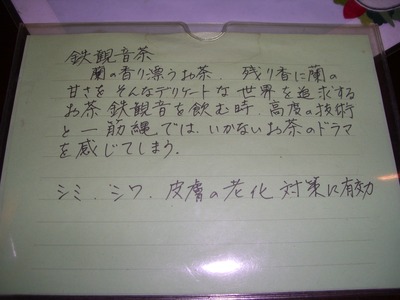 鉄観音茶
蘭の香り漂うお茶. 残り香に蘭の
甘さを そんなデリケートな 世界を追求する
お茶 鉄観音を飲む時. 高度の技術
と 一筋縄では. いかないお茶のドラマ
を感じてしまう.
シミ. シワ. 皮膚の老化 対策に有効